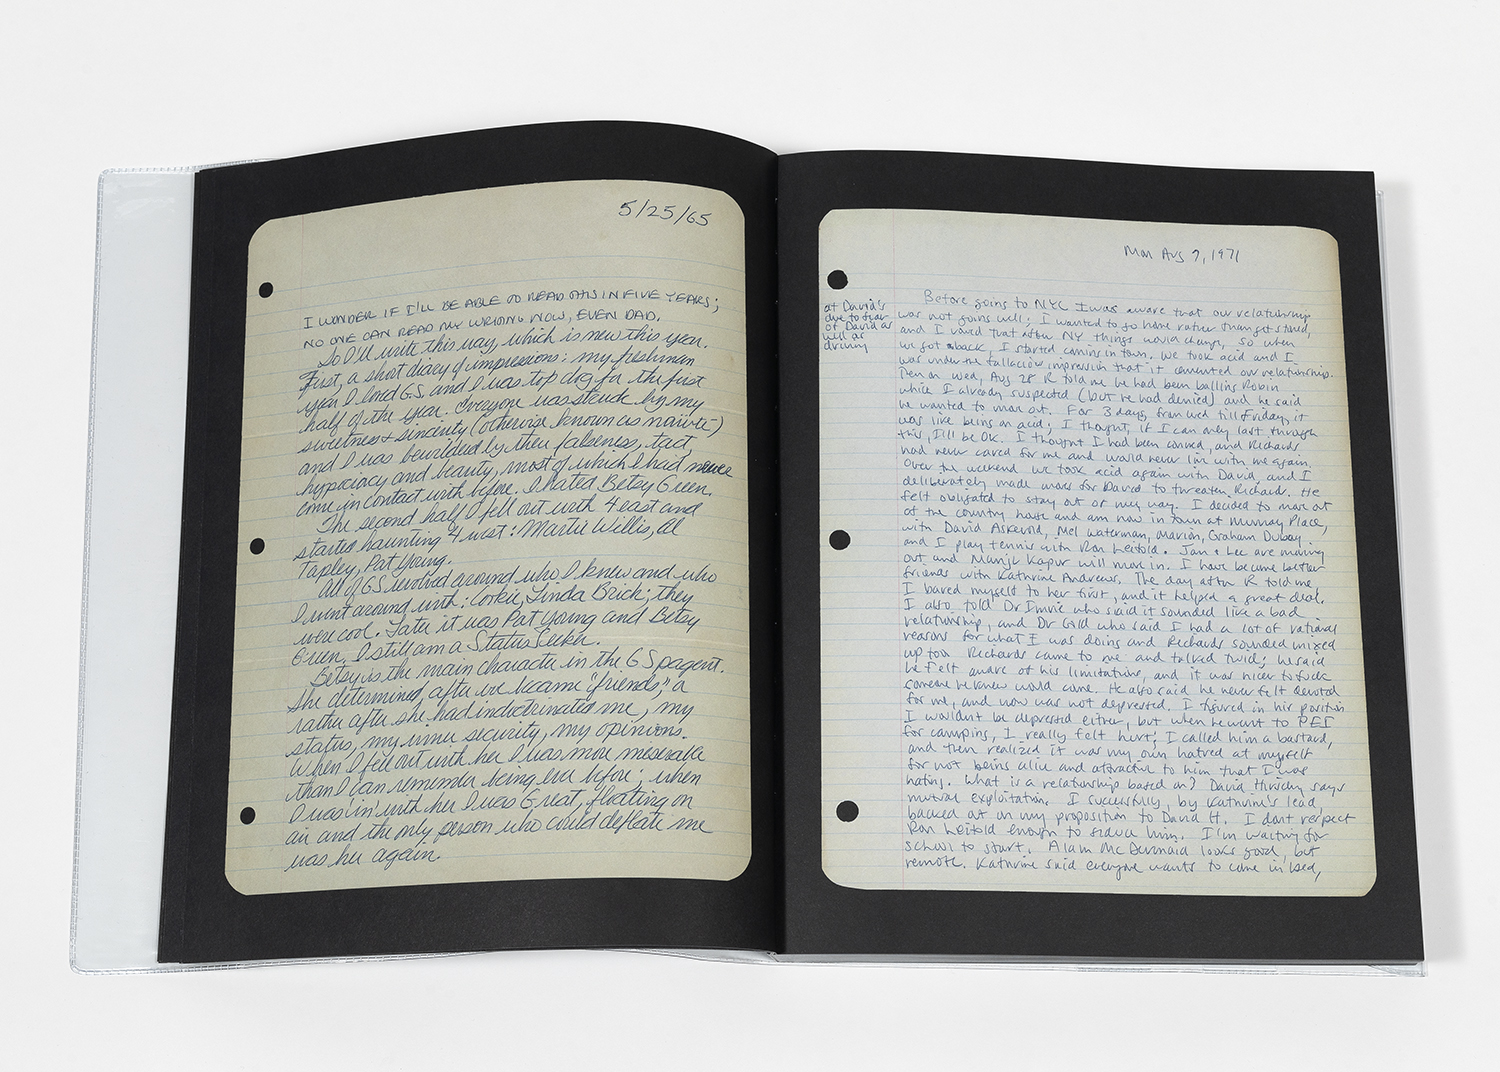 5/25/65
I WONDER IF I'LL BE ABLE TO READ THIS IN FIVE YEARS;
NO ONE CAN READ MY WRITING NOW, EVEN DAD.
So I'll write this way, which is new this year.
First, a short diary of impressions: my freshman
year I loved G.S. and I was top dog for the first
half of the year. Everyone was struck by my
sweetness & sincerity (otherwise known as naivete)
and I was bewildered by their falseness, tact,
hypocracy and beauty, most of which I had never
come in contact with before. I hated Betsy Green.
The second half I fell out with 4 east and
started haunting 4 west: Martie Willis, Al
Tapley, Pat Young.
All of GS revolved around who I knew and who
I went around with: Corkie, Linda Brick; they
were cool. Later it was Pat Young and Betsy
Green. I still am a Status Seeker.
Betsy is the main character in the GS pagent.
She determined, after we became "friends," a
rather after she had indoctrinated me, my
status, my inner security, my opinions.
When I fell out with her I was more miserable
than I can remember being ever before; when
I was 'in' with her I was Great, floating on
air and the only person who could deflate me
was her again.
Mon Aug 7, 1971
at David's
due to fear
of David as
well as
driving
Before going to NYC I was aware that our relationship
was not going well; I wanted to go home rather than get stoned,
and I vowed that after NY things would change, so when
we got back, I started coming in town. We took acid and I
was under the fallacious impression that it cemented our relationship.
Then on Wed, Aug 28 R told me he had been balling Robin
while I already suspected (but he had denied) and he said
he wanted to move out. For 3 days, from wed till Friday, it
was like being on acid. I thought, if I can only last through
this, I'll be OK. I thought I had been conned, and Richards
had never cared for me and would never live with me again.
Over the weekend we took acid again with David, and I
deliberately made moves for David to threaten Richard. He
felt obligated to stay out of my way. I decided to move out
of the country house and am now in town at Murray Place,
with David Askevold, Mel Waterman, Marion, Graham Dubay
and I play tennis with Ron Leitold. Jan & Lee are moving
out and Manju Kapur will move in. I have become better
friends with Kathrine Andrews. The day after R told me
I bared myself to her first, and it helped a great deal.
I also told Dr Imrie who said it sounded like a bad
relationship, and Dr Gold who said I had a lot of rational
reasons for what I was doing and Richards sounded mixed
up too. Richards came to me and talked twice; he said
he felt aware of his limitations, and it was nicer to fuck
someone he knew would come. He also said he never felt devoted
for me, and now was not depressed. I figured in his position
I wouldn't be depressed either, but when he went to PEI
for camping, I really felt hurt; I called him a bastard,
and then realized it was my own hatred at myself
for not being alive and attractive to him that I was
hating. What is a relationship based on? David Hirsch says
mutual exploitation. I successfully, by Kathrine's lead,
backed out on my proposition to David H. I dont respect
Ron Leitold enough to seduce him. I'm waiting for
school to start. Alan McDermaid looks good, but
remote. Kathrine said everyone wants to come in bed,